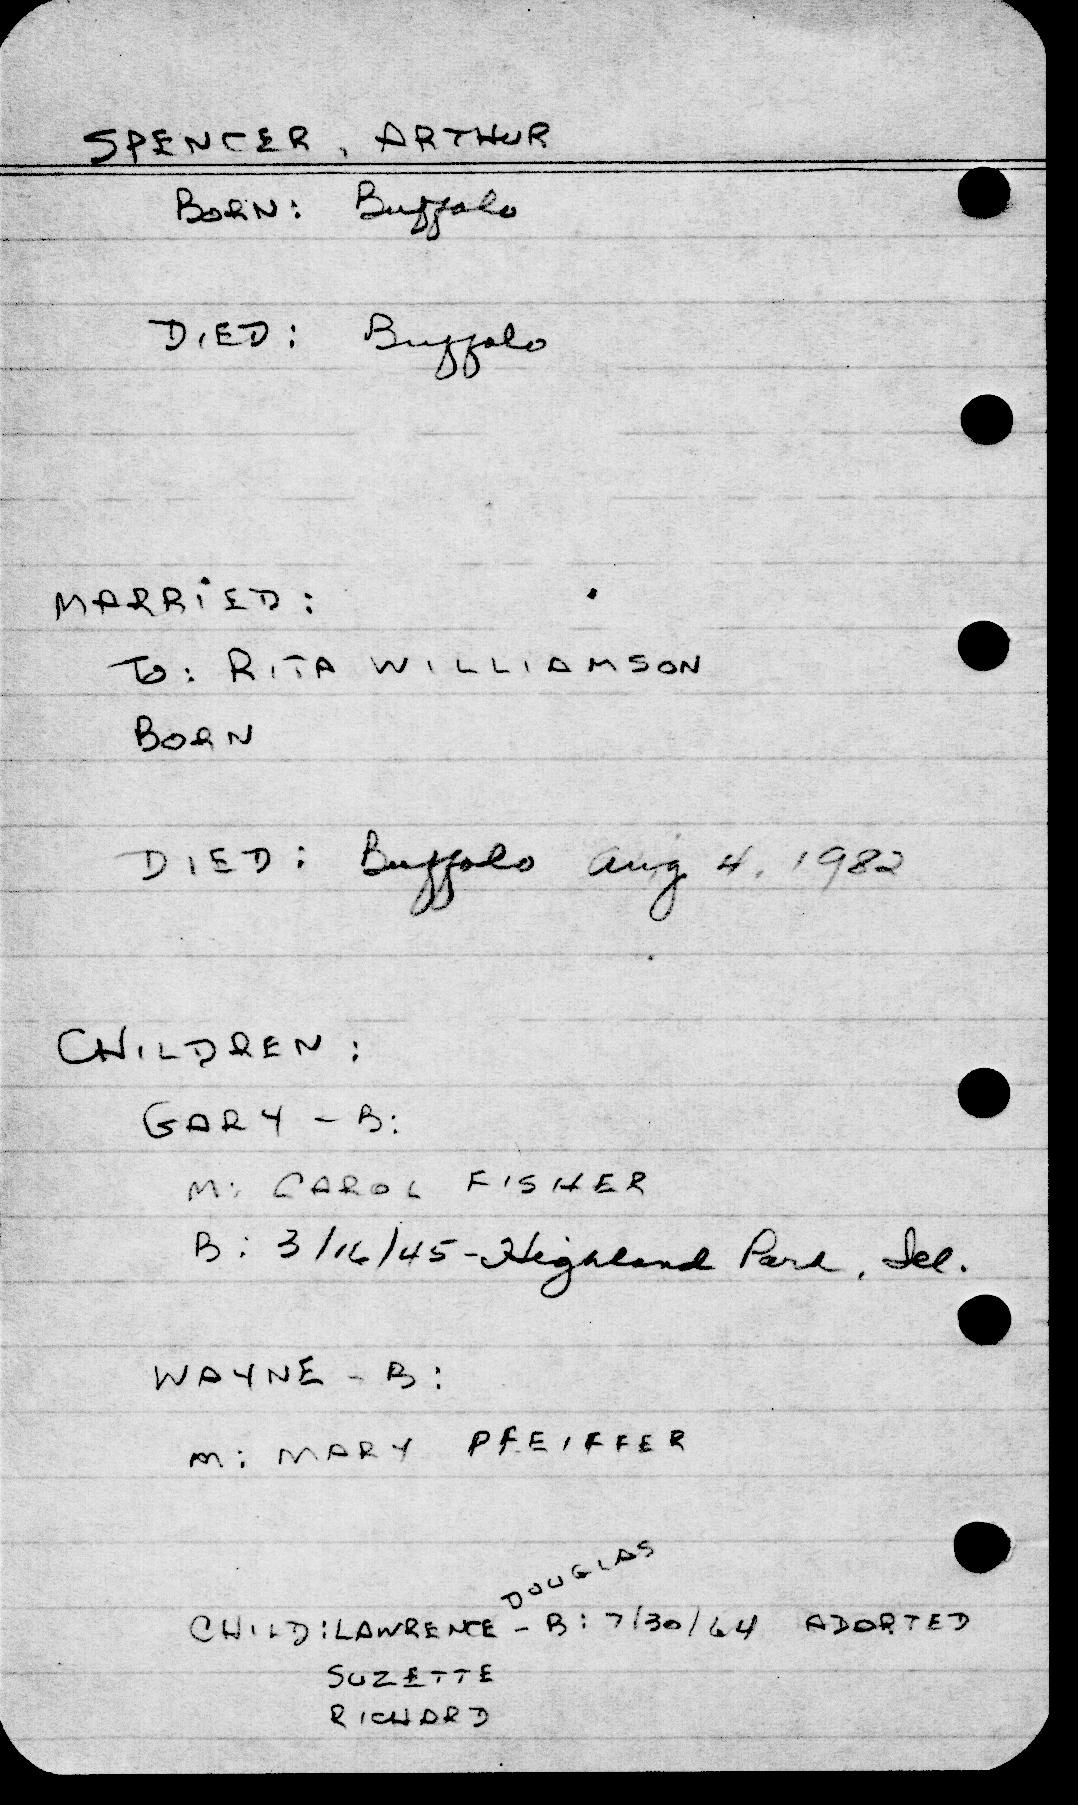 SPENCER, ARTHUR
BORN: Buffalo
DIED: Buffalo
MARRIED:
TO: RITA WILLIAMSON
BORN
DIED: Buffalo Aug 4, 1982
CHILDREN:
GARY - B:
M: CAROL FISHER
B: 3/16/45 - Highland Park, Ill.
WAYNE - B:
M: MARY PFEIFFER
DOUGLAS
CHILD: LAWRENCE - B: 7/30/64 ADOPTED
SUZETTE
RICHARD